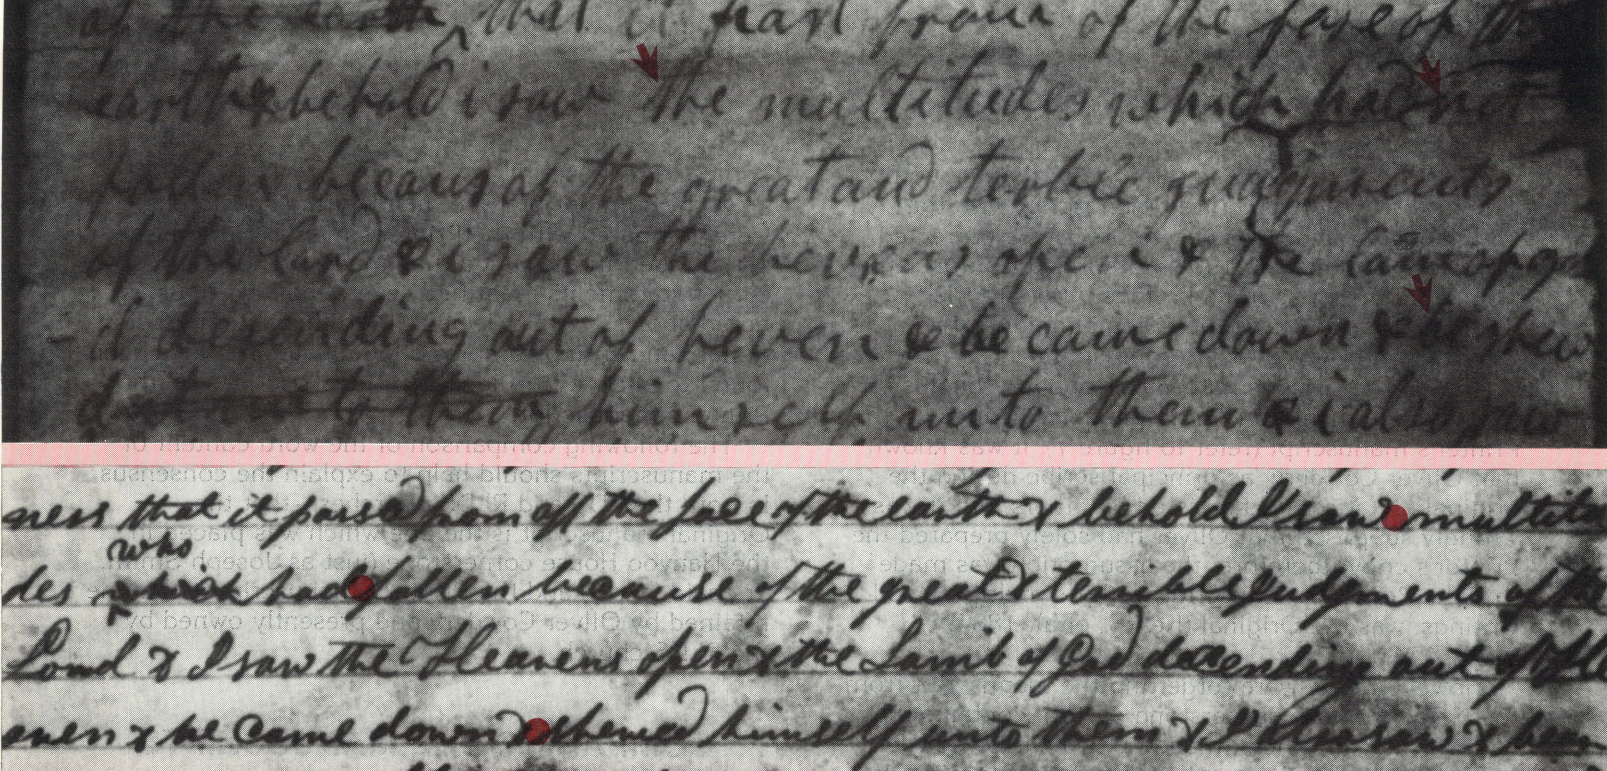 of the earth that it past from of the face of th
earth & behold i saw the multitudes which had not
fallen becaus of the great and terbic judgments
of the Lord & i saw the hevens open & the lam of go
-d desending out of heven & he came down & he shew
d unto them himself unto them & i also saw
ness that it passed from off the face of the earth & behold I saw multitu
who
des which had fallen because of the great & terrible Judgments of the
Lord & I saw the Heavens open & the Lamb of God decending out of He
aven & he came down & shewed himself unto them & I also saw &